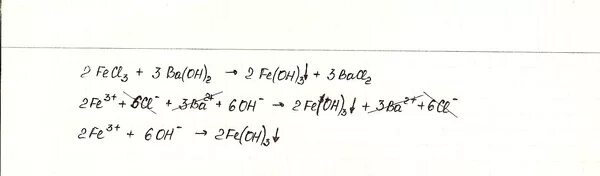 2 FeCl₃ + 3 Ba(OH)₂ → 2 Fe(OH)₃↓ + 3 BaCl₂
2Fe³⁺ + 6Cl⁻ + 3Ba²⁺ + 6OH⁻ → 2Fe(OH)₃↓ + 3Ba²⁺ + 6Cl⁻
2Fe³⁺ + 6OH⁻ → 2Fe(OH)₃↓